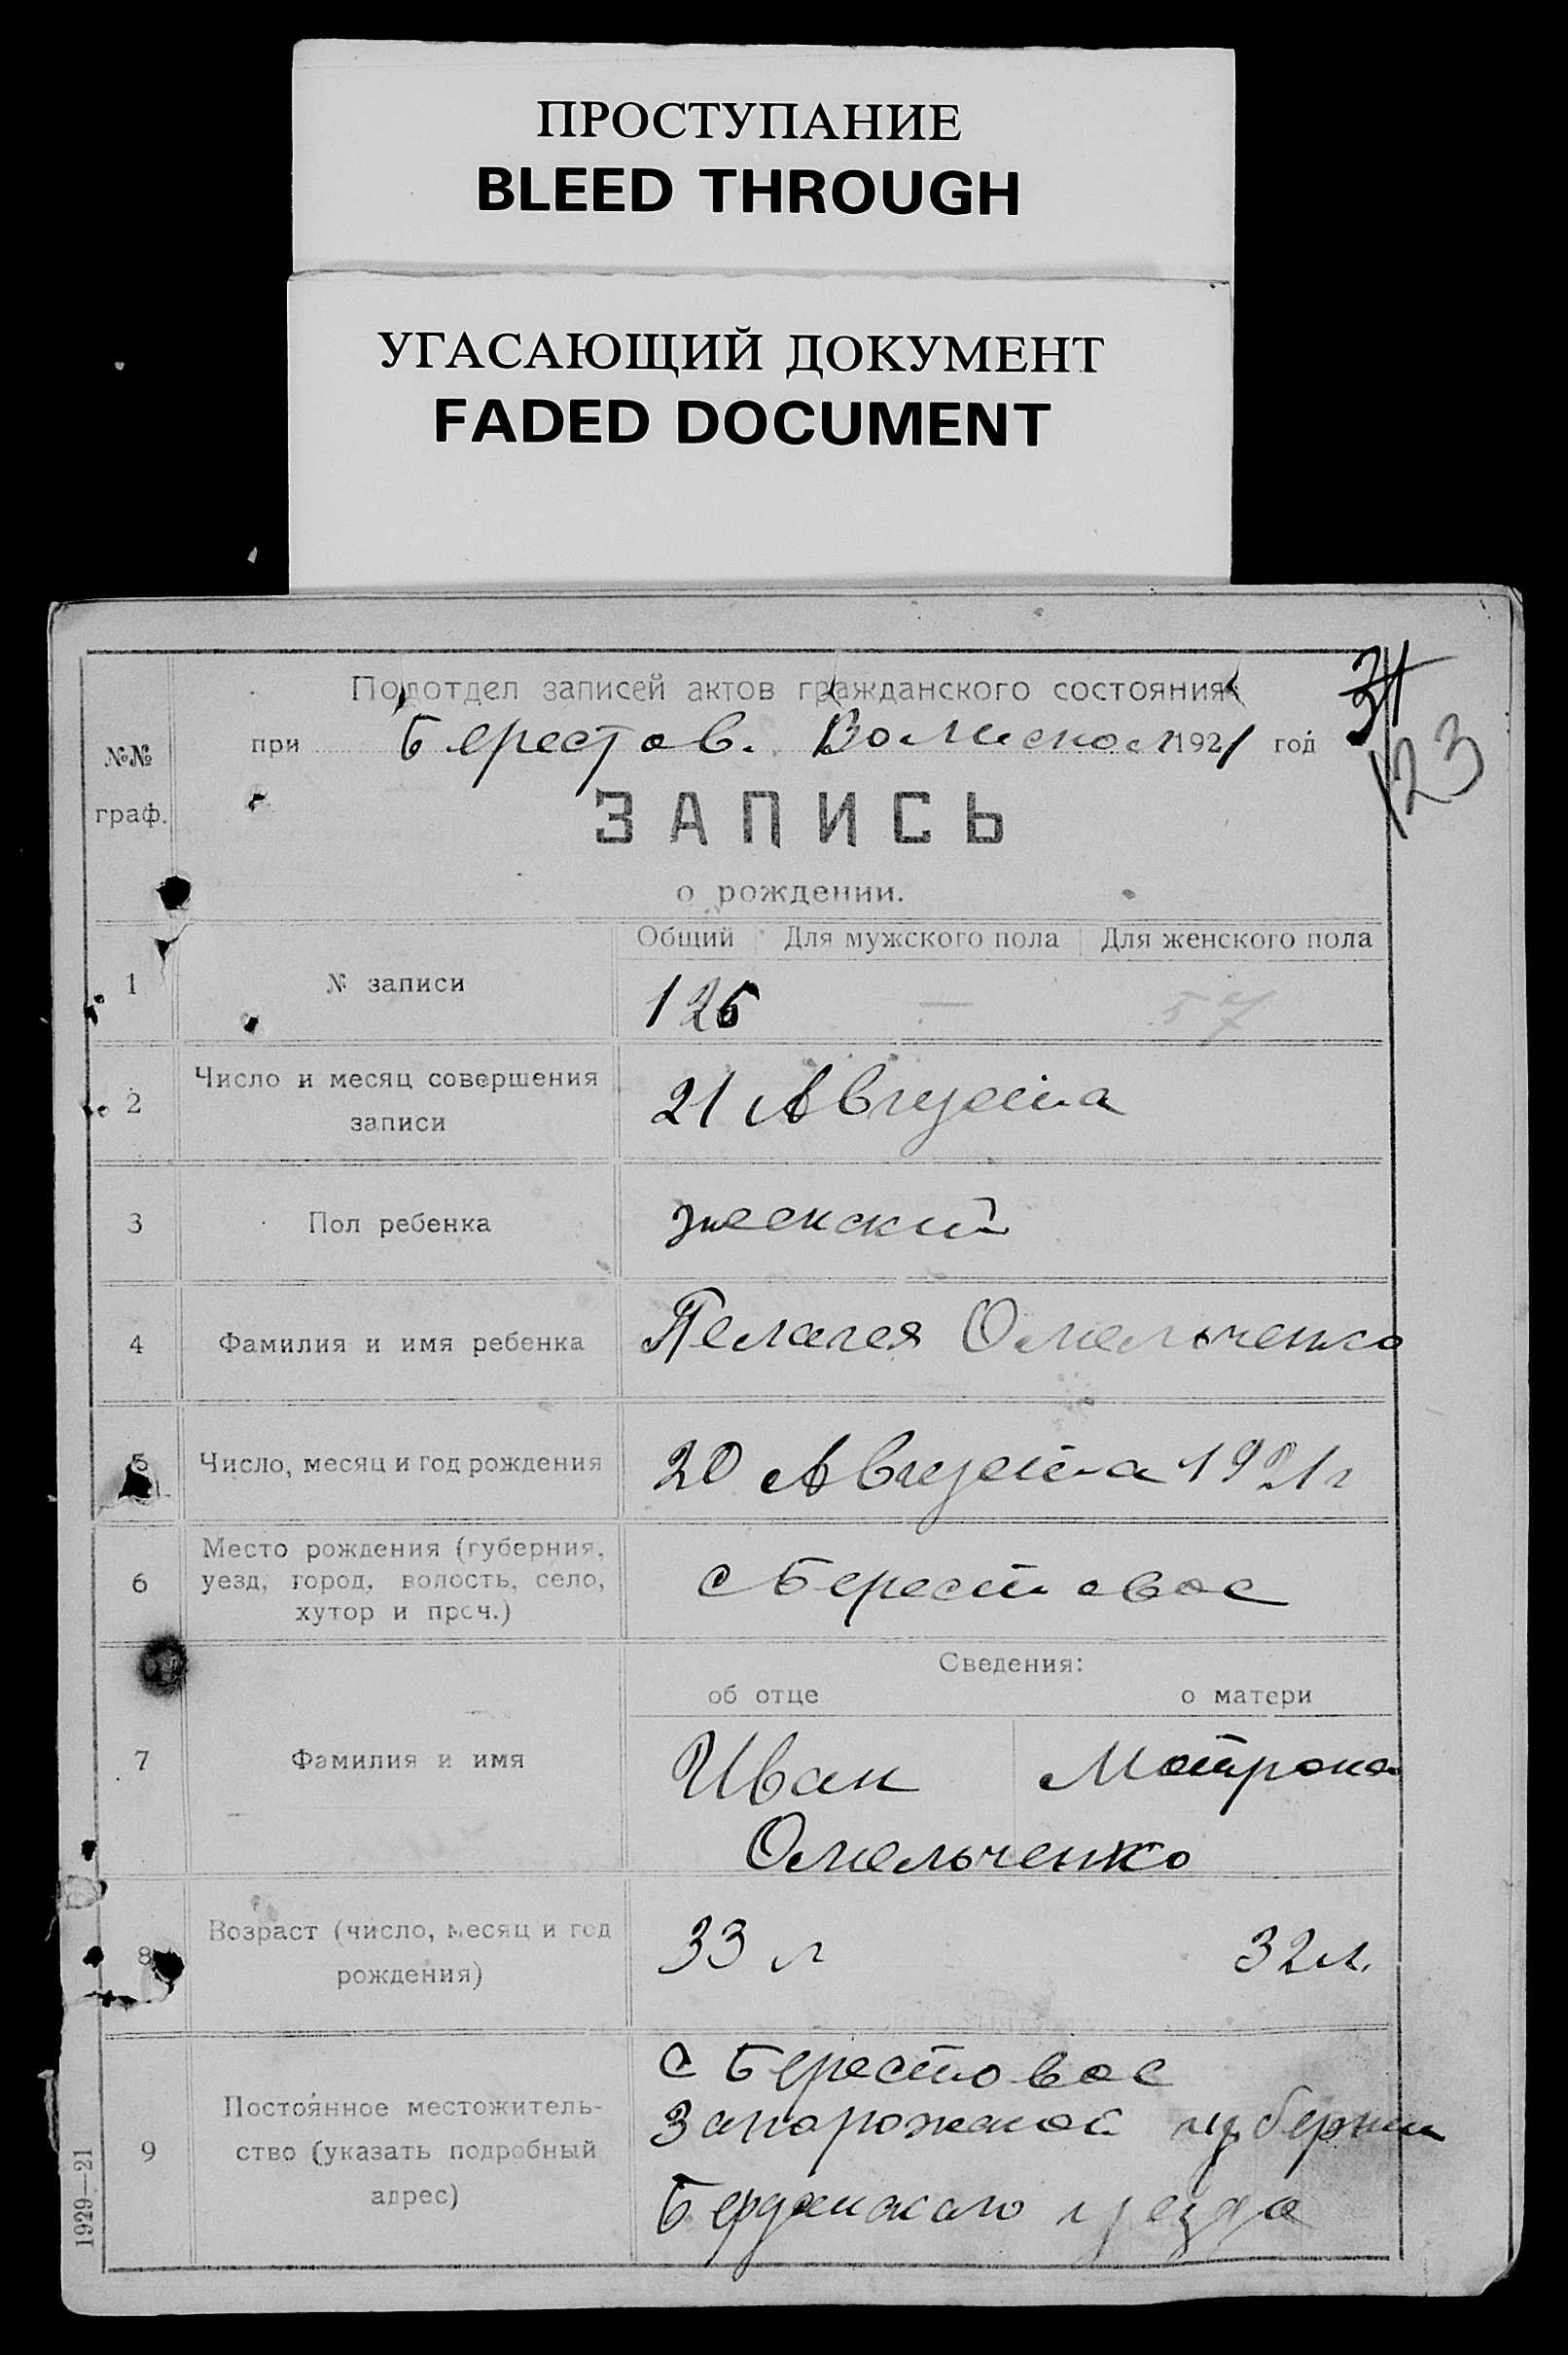 ПРОСТУПАНИЕ
BLEED THROUGH
УГАСАЮЩИЙ ДОКУМЕНТ
FADED DOCUMENT
Подотдел записей актов гражданского состояния
31
при Берестов. 1921 год
123
№№
граф.
ЗАПИСЬ
о рождении.
Общий Для мужского пола Для женского пола
1 № записи 126 — 57
2 Число и месяц совершения
записи
21 Августа
3 Пол ребенка женский
4 Фамилия и имя ребенка Пелагея Омельченко
5 Число, месяц и год рождения 20 Августа 1921 г
6 Место рождения (губерния,
уезд, город, волость, село,
хутор и проч.)
с Берестовое
Сведения:
об отце о матери
7 Фамилия и имя Иван Матрона
Омельченко
8 Возраст (число, месяц и год
рождения)
33 л 32 л.
9 Постоянное местожитель-
ство (указать подробный
адрес)
с Берестовое
Запорожской губернии
Бердянского уезда
1929—21